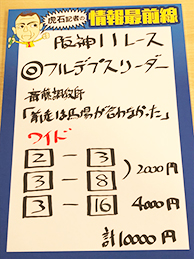 虎石記者の
情報最前線
阪神11レース
◎フルデプスリーダー
斎藤誠調教師
「前走は馬場が合わなかった」
ワイド
2 - 3
3 - 8 ) 2000円
3 - 16 4000円
計10000円